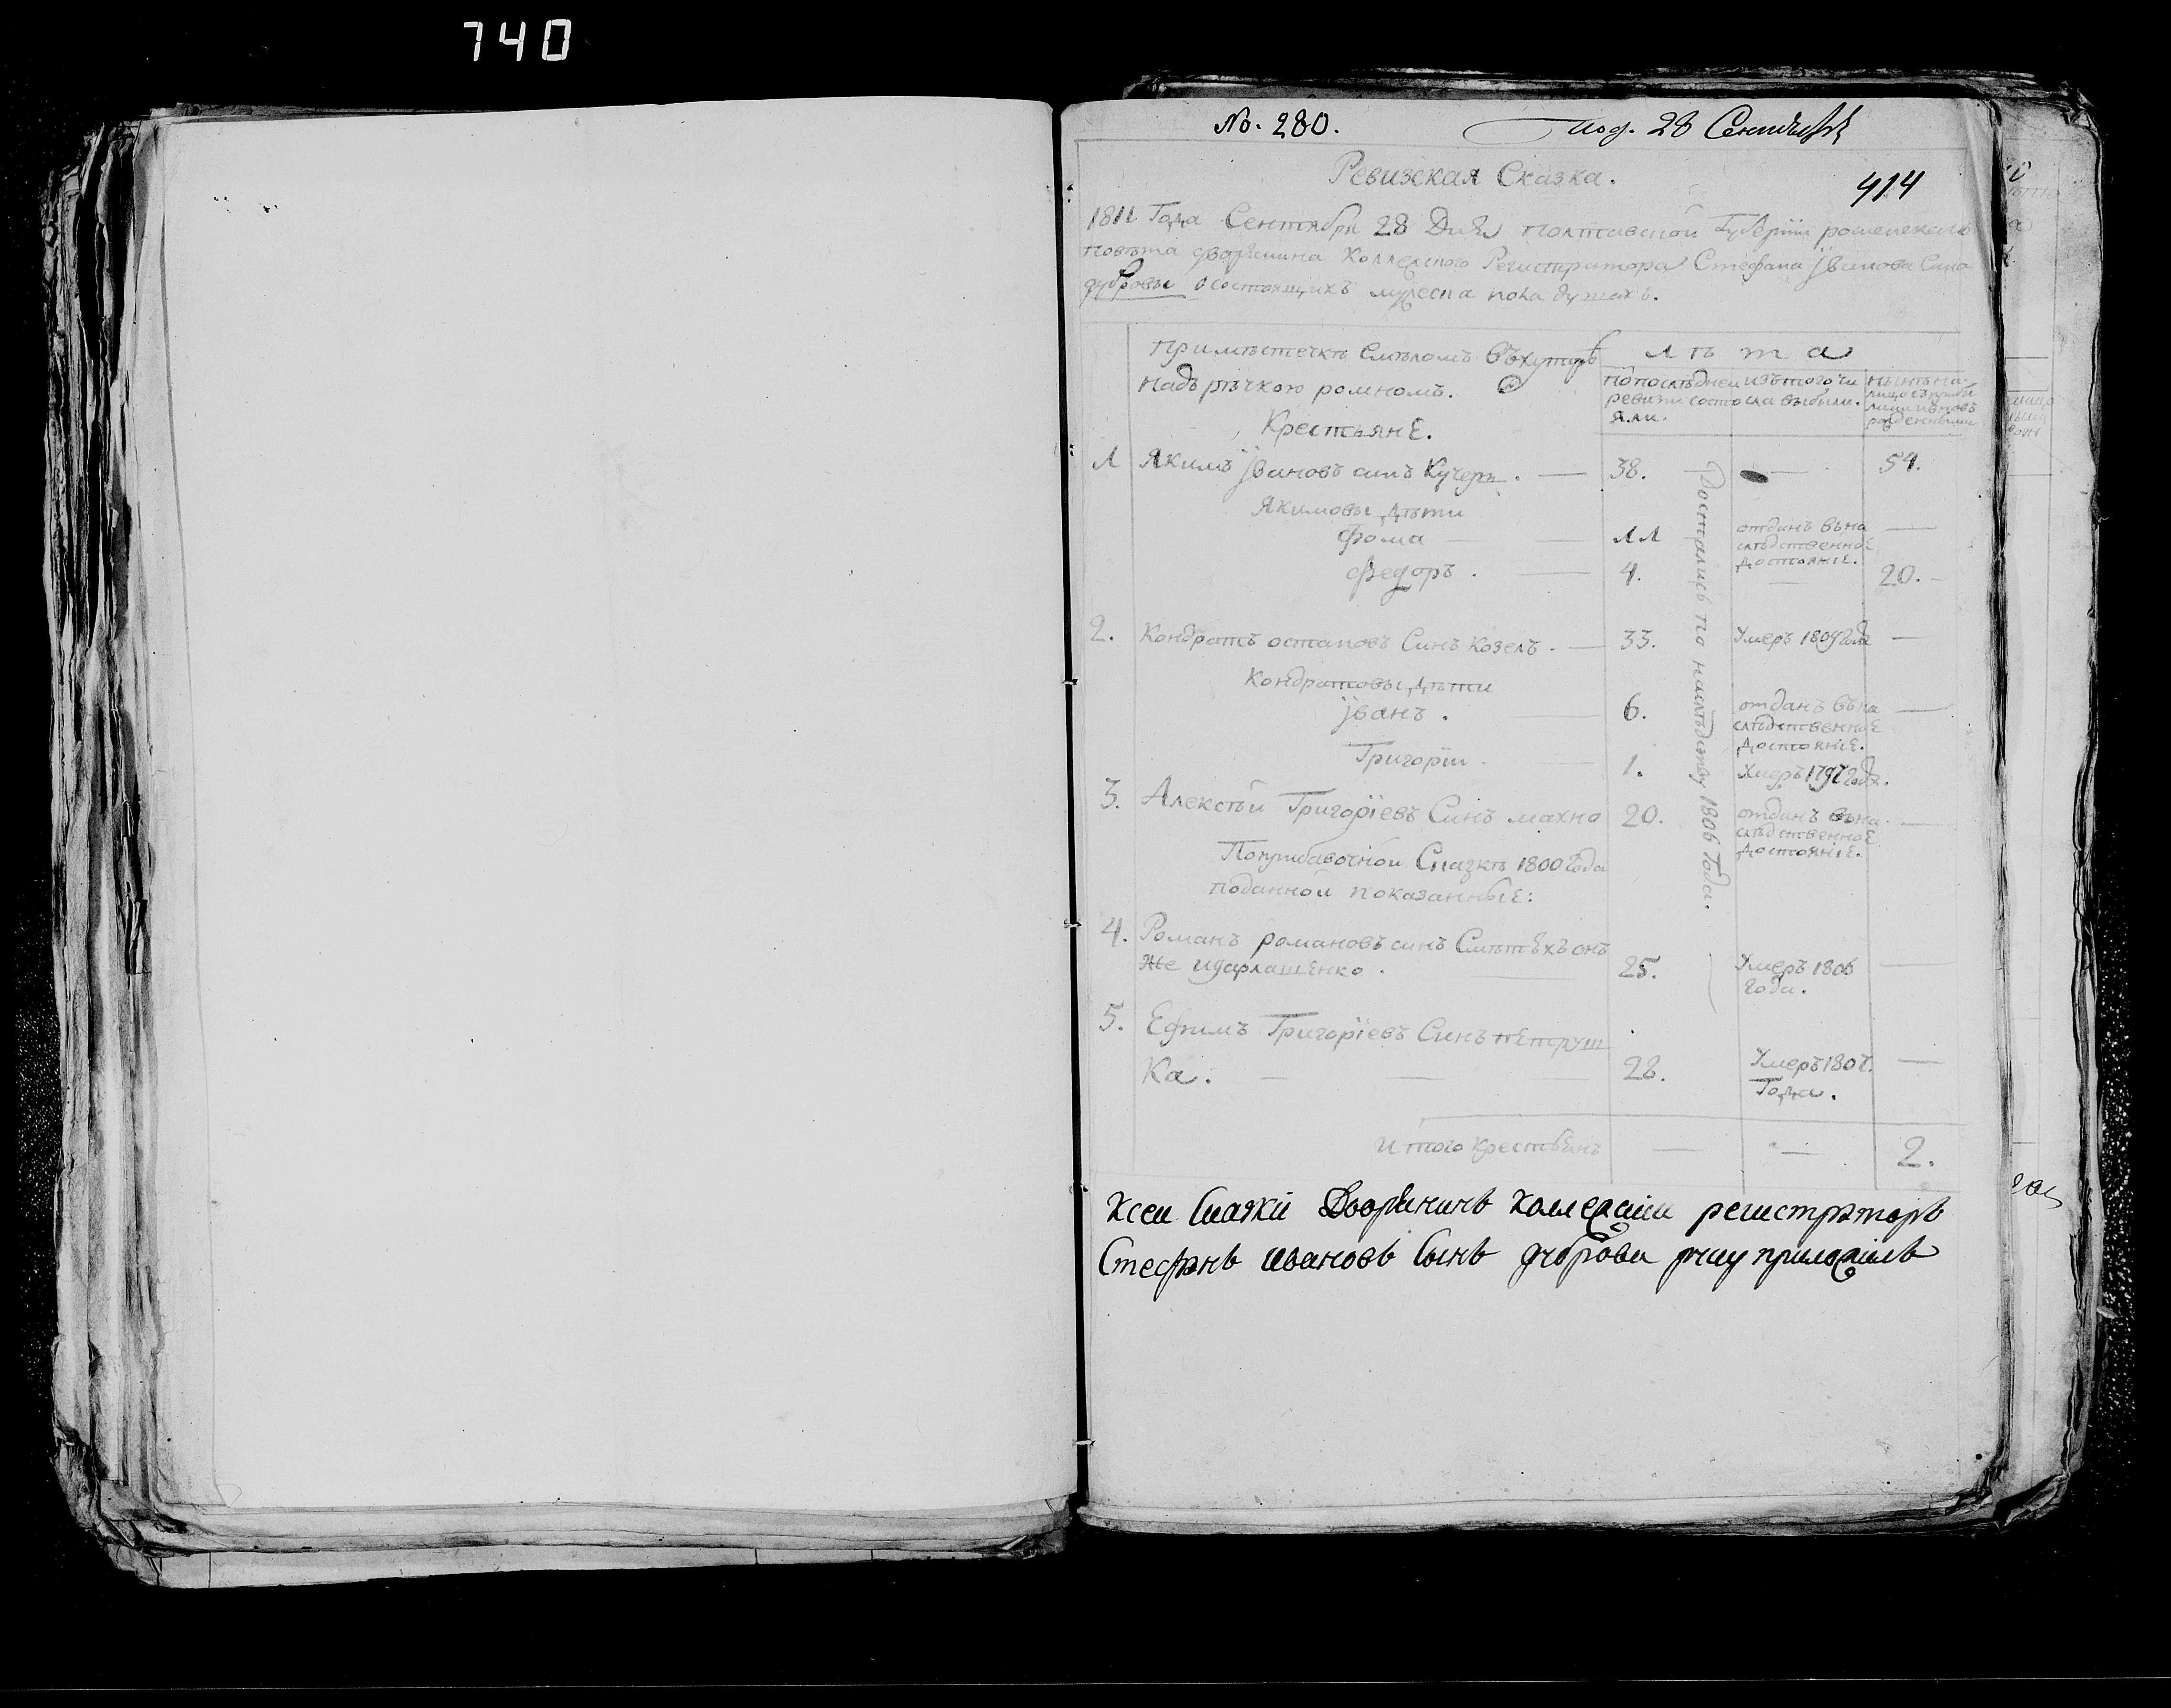 740
No. 280.
под. 28 Сентября
Ревизская Сказка.
414
1811 Года Сентября 28 Дня Полтавской Губернии роменскаго
повѣта дворянина Коллежского Регистратора Стефана Їванова Сина
дубровы о состоящихъ мужеска пола душахъ.
При мѣстечкѣ Смѣломъ въ хуторѣ
надъ рѣчкою ромномъ.
Крестьяне.
лѣта
по послѣдней ревизіи состояли.
изъ того числа выбыли.
нынѣ на лицо съ прибылими и вновь рожденними
1 Якимъ Ївановъ синъ Кучеръ. — 38. — 54.
Якимовы дѣти
Фома — 11 отданъ въ наслѣдственное достояніе. —
Федоръ. — 4. — 20.
2. Кондратъ остаповъ Синъ Козелъ. — 33. Умеръ 1809 Года —
Кондратовы дѣти
Їванъ. 6. отданъ въ наслѣдственное достояніе. —
Григоріи. 1. Умеръ 1797 Года.
3. Алексѣй Григоріевъ Синъ махно 20. отданъ въ наслѣдственное достояніе. —
Достались по наслѣдству 1806 Года.
По прибавочной Сказкѣ 1800 Года
поданной показанные:
4. Романъ романовъ синъ онъ
же 25. Умеръ 1806 Года. —
5. Ефимъ Григоріевъ Синъ петруш
ка. — 28. Умеръ 1807. Года. —
Итого крестьянъ — — 2.
К сей сказки Дворянинъ коллежски регистраторъ
Стефанъ Ивановъ сынъ дуброва руку приложилъ